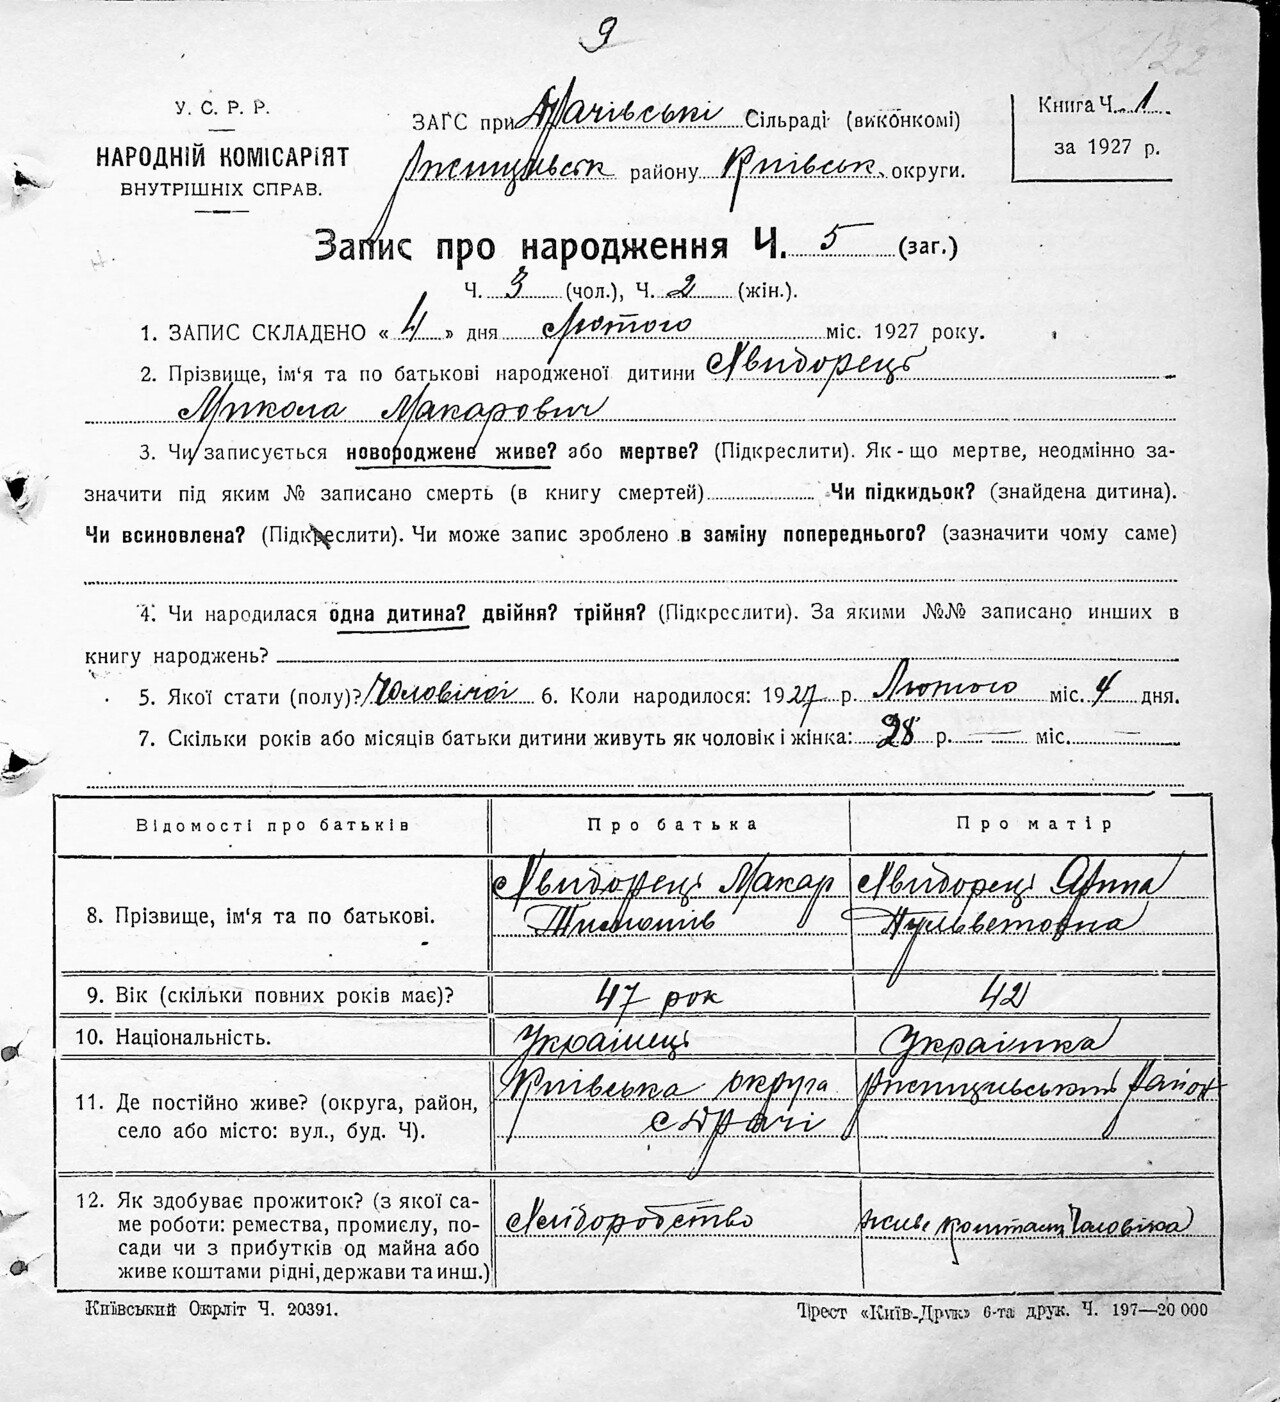 9
122
У. С. Р. Р.
НАРОДНІЙ КОМІСАРІЯТ
ВНУТРІШНІХ СПРАВ.
ЗАГС при Драчівські Сільраді (виконкомі)
Ржищівськ району Київськ. округи.
Книга Ч. 1
за 1927 р.
Запис про народження Ч. 5 (заг.)
Ч. 3 (чол.), Ч. 2 (жін.).
1. ЗАПИС СКЛАДЕНО « 4 » дня Лютого міс. 1927 року.
2. Прізвище, ім'я та по батькові народженої дитини
Микола Макарович
3. Чи записується новороджене живе? або мертве? (Підкреслити). Як-що мертве, неодмінно за-
значити під яким № записано смерть (в книгу смертей) Чи підкидьок? (знайдена дитина).
Чи всиновлена? (Підкреслити). Чи може запис зроблено в заміну попереднього? (зазначити чому саме)
4. Чи народилася одна дитина? двійня? трійня? (Підкреслити). За якими №№ записано инших в
книгу народжень?
5. Якої стати (полу)? Чоловічої 6. Коли народилося: 1927 р. Лютого міс. 4 дня.
7. Скільки років або місяців батьки дитини живуть як чоловік і жінка: 28 р. — міс. —
Відомості про батьків Про батька Про матір
8. Прізвище, ім'я та по батькові. Макар
9. Вік (скільки повних років має)? 47 рок 42
10. Національність. Українець Українка
11. Де постійно живе? (округа, район, село або місто: вул., буд. Ч). Київська округа Ржищівський район
с Драчі
12. Як здобуває прожиток? (з якої са-
ме роботи: ремества, промислу, по-
сади чи з прибутків од майна або
живе коштами рідні, держави та инш.) Хліборобство живе коштам Чоловіка
Київський Окрліт Ч. 20391. Трест «Київ-Друк» 6-та друк. Ч. 197—20 000